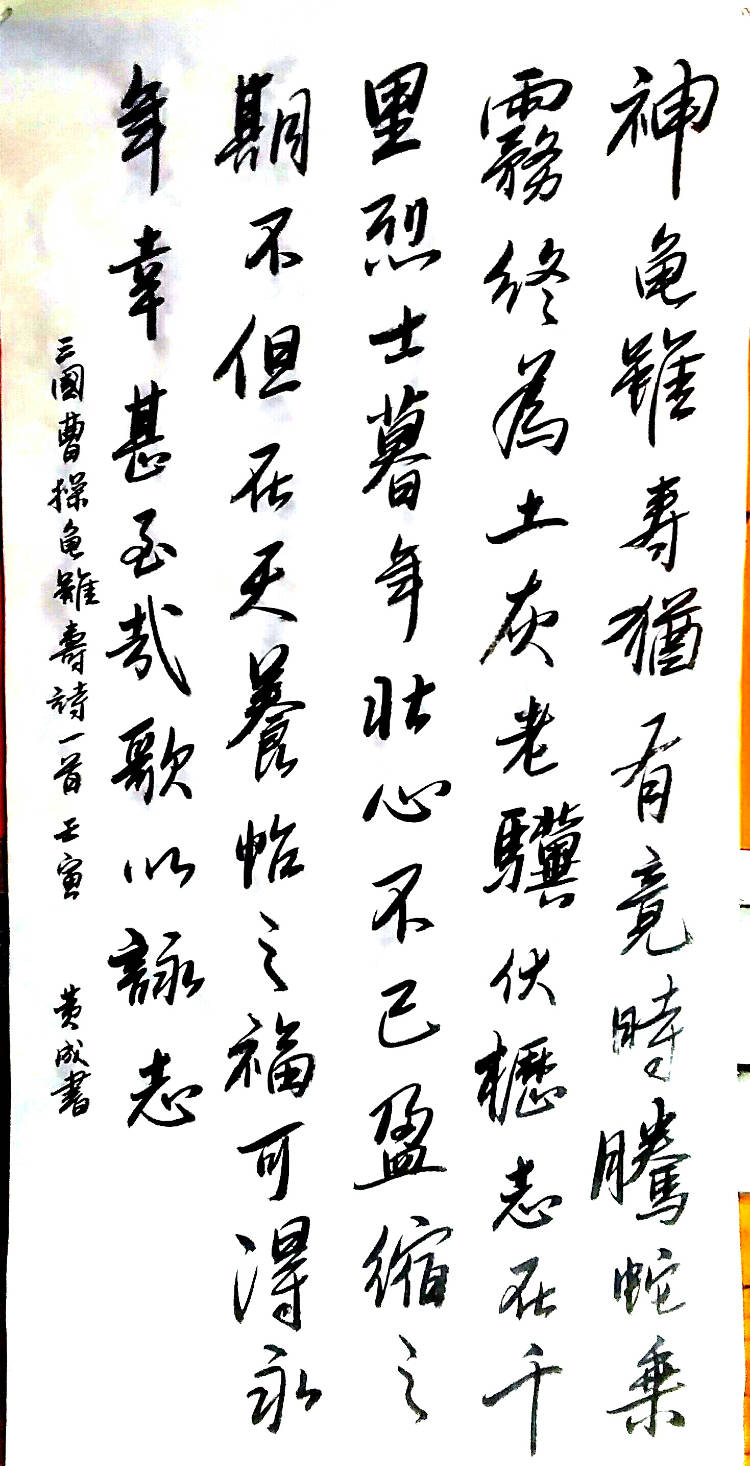 神龟雖寿猶有竟時騰蛇乗
霧終為土灰老驥伏櫪志在千
里烈士暮年壮心不已盈缩之
期不但在天養怡之福可得永
年幸甚至哉歌以詠志
三國曹操龟雖壽詩一首壬寅
黄成書